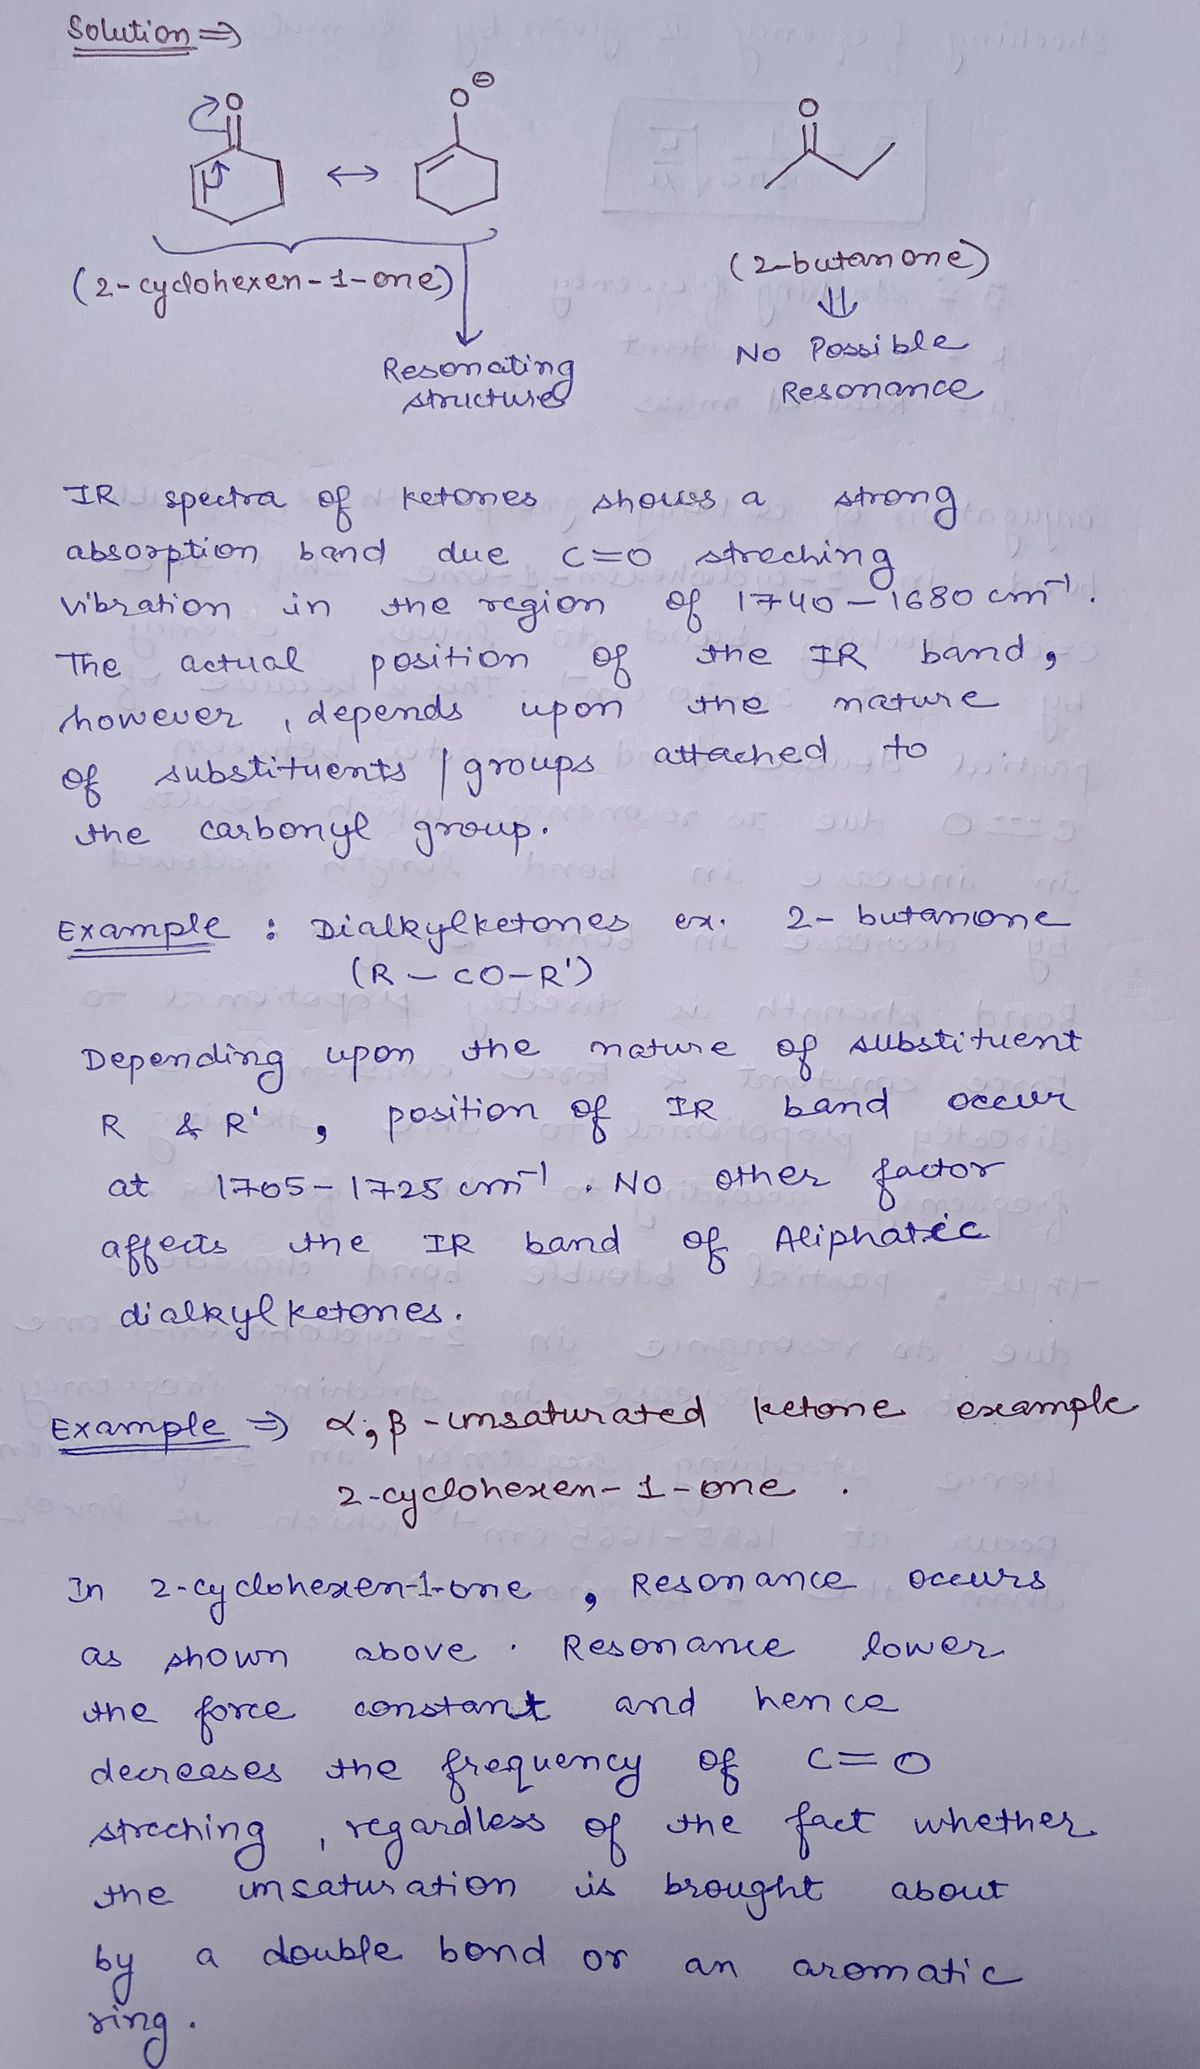 Solution ⇒
O
O⊖
O
↔
(2-cyclohexen-1-one)
(2-butanone)
⇓
Resonating
structures
No Possible
Resonance
IR spectra of ketones shows a strong
absorption band due C=O streching
vibration in the region of 1740-1680 cm⁻¹.
The actual position of the IR band,
however, depends upon the nature
of substituents / groups attached to
the carbonyl group.
Example : Dialkylketones ex. 2-butanone
(R-CO-R')
Depending upon the nature of substituent
R & R', position of IR band occur
at 1705-1725 cm⁻¹. No other factor
affects the IR band of Aliphatic
dialkylketones.
Example ⇒ α,β-unsaturated ketone example
2-cyclohexen-1-one.
In 2-cyclohexen-1-one, Resonance occurs
as shown above. Resonance lower
the force constant and hence
decreases the frequency of C=O
streching, regardless of the fact whether
the unsaturation is brought about
by a double bond or an aromatic
ring.